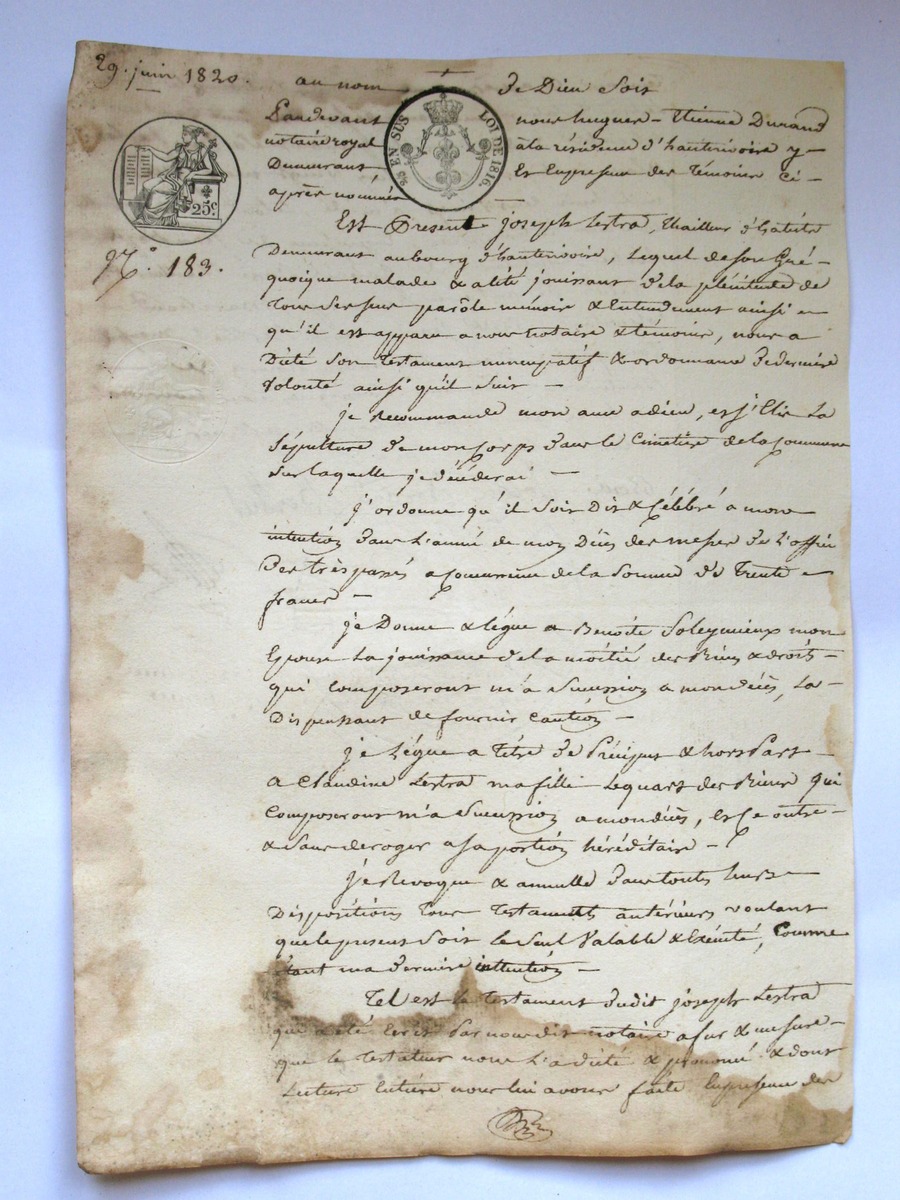 29. juin 1820.
au nom de Dieu soit
Pardevant nous hugues-Etienne Durand
notaire royal à la résidence d'hauterivoire y
Demeurant Et En presence des témoins ci-
après nommés
25 EN SUS LOI DE 1816.
25c
No. 183.
Est Present joseph Lestra, thailleur d'habits
Demeurant au bourg d'hauterivoire, Lequel de son Gré-
quoique malade & alité jouissant de la plénitude de
tous ses sens parole mémoir & Entendement ainsi
qu'il est apparu a nous notaire & témoins, nous a
Dicté son testament nuncupatif & ordonnance de dernière
volonté ainsi qu'il suit -
je recommande mon ame a dieu, et j'Elis La
sépulture de mon corps dans le cimetière de la commune
sur laquelle je décéderai -
j'ordonne qu'il soit Dit & Célébré a mon
intention dans L'année de mon Décès des messes de L'office
Des trèspassés a concurrence de la somme de trente
francs -
je Donne & lègue a Benoite Soleymieux mon
Epouse La jouissance de la moitié des Biens & droits-
qui composeront m'a succession a mon décès, La
Dispensant de fournir caution -
je Lègue a titre de Préciput & hors Part -
a Claudine Lestra ma fille Le quart des Biens qui
composeront m'a succession a mon décès, et Ce outre-
& sans deroger a sa portion héréditaire -
je Revoque & annulle dans toutes leurs
Dispositions tous testaments antérieurs voulant
que le present soit le seul valable & Exécuté, Comme
étant ma dernière intention -
Tel est le testament dudit joseph Lestra
qui a été Ecrit Par nous dit notaire a fur & mesure-
que le testateur nous L'a dicté & prononcé & dont
Lecture Entière nous lui avons faite En presence des